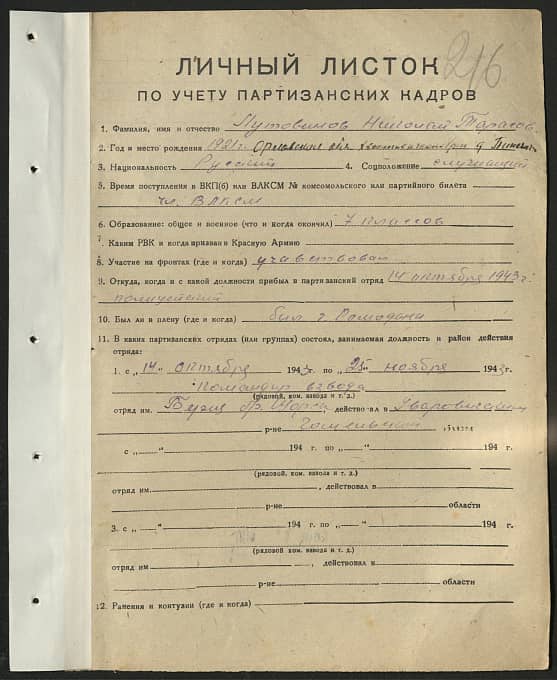 216
ЛИЧНЫЙ ЛИСТОК
ПО УЧЕТУ ПАРТИЗАНСКИХ КАДРОВ
1. Фамилия, имя и отчество Николай Тарасов.
2. Год и место рождения 1921 г. Орловская обл д.
3. Национальность Русский 4. Соцположение служащий
5. Время поступления в ВКП(б) или ВЛКСМ № комсомольского или партийного билета
чл. ВЛКСМ
6. Образование: общее и военное (что и когда окончил) 7 классов
7. Каким РВК и когда призван в Красную Армию
8. Участие на фронтах (где и когда) учавствовал
9. Откуда, когда и с какой должности прибыл в партизанский отряд 14 октября 1943 г.
10. Был ли в плену (где и когда) был г.
11. В каких партизанских отрядах (или группах) состоял, занимаемая должность и район действия
отряда:
1. с „14“ октября 1943 г. по „25“ ноября 1943 г.
Командир взвода
(рядовой, ком. взвода и т. д.)
отряд им. бр. Щорса, действовал в Уваровичском
р-не Гомельской области
с „—“ 194 г. по „—“ 194 г.
(рядовой, ком. взвода и т. д.)
отряд им. , действовал в
р-не области
3. с „—“ 194 г. по „—“ 194 г.
(рядовой, ком. взвода и т. д.)
отряд им. , действовал в
р-не области
12. Ранения и контузии (где и когда)